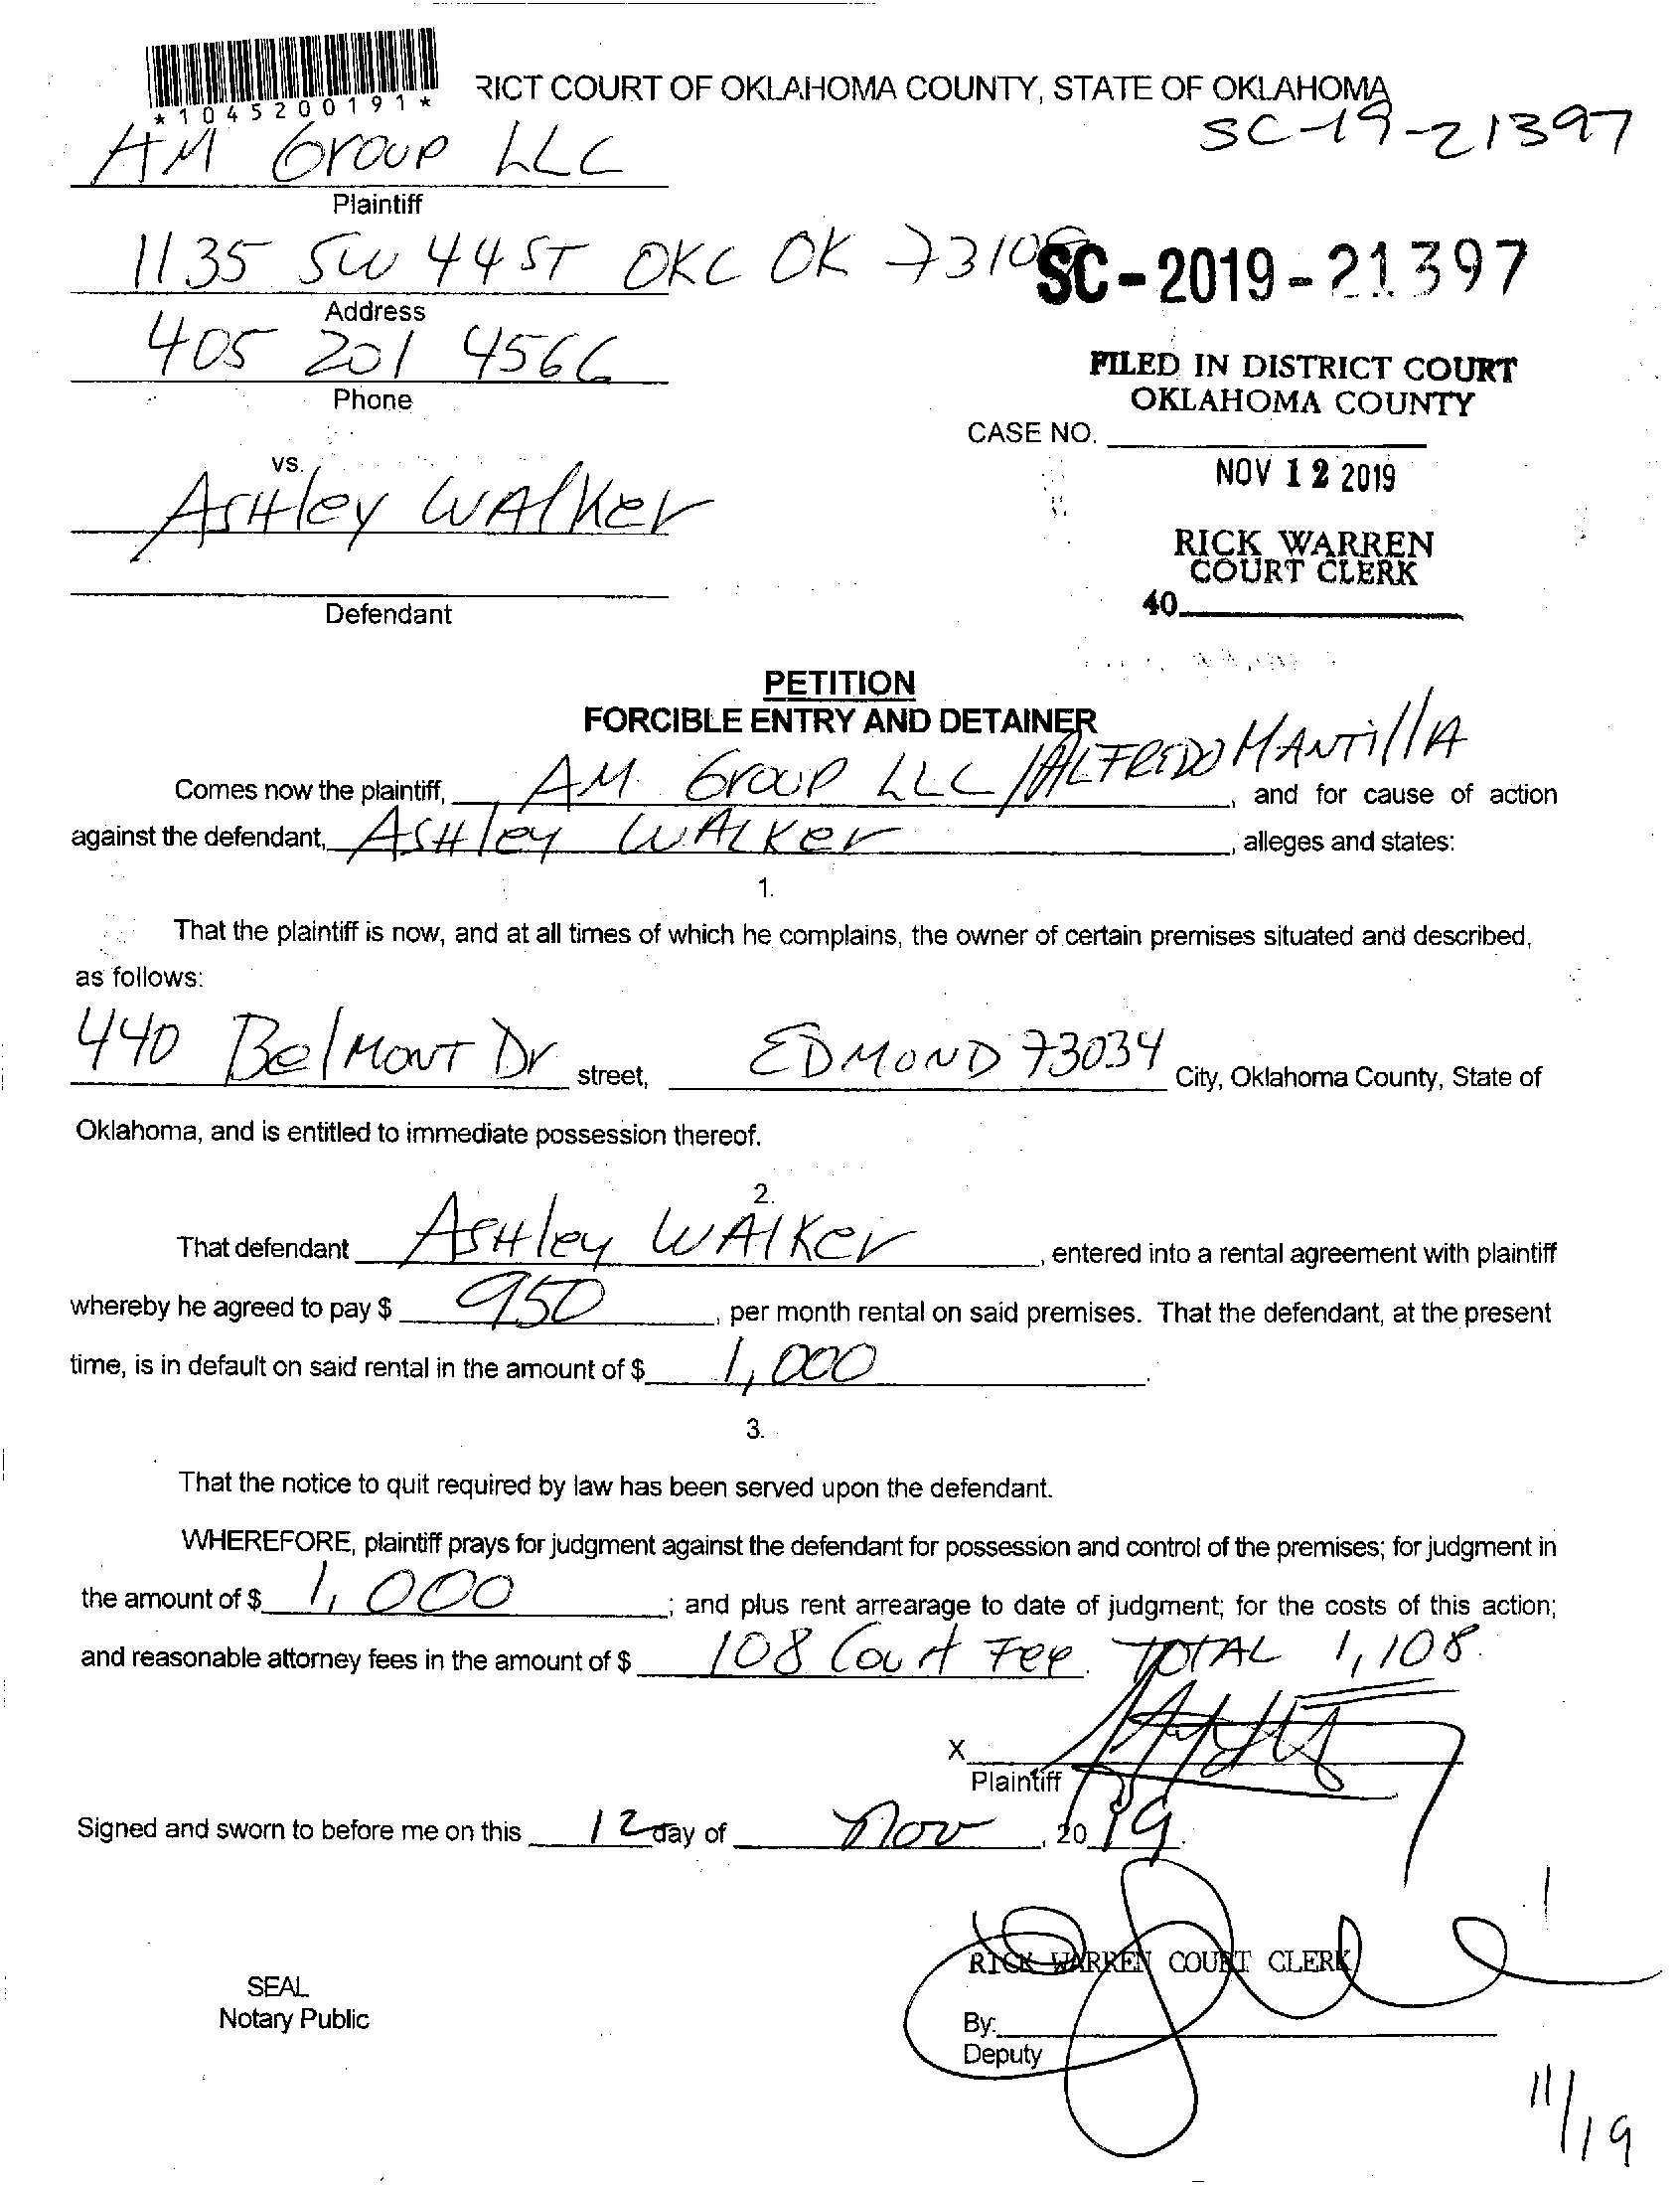 *1045200191*
RICT COURT OF OKLAHOMA COUNTY, STATE OF OKLAHOMA
SC-19-21397
AM Group LLC
Plaintiff
1135 SW 44 ST OKC OK
SC-2019-21397
Address
405 201 4566
Phone
FILED IN DISTRICT COURT
OKLAHOMA COUNTY
CASE NO.
NOV 12 2019
vs.
ASHley WAlKer
RICK WARREN
COURT CLERK
40
Defendant
PETITION
FORCIBLE ENTRY AND DETAINER
Comes now the plaintiff, AM Group LLC / ALFREDO MANTillA, and for cause of action
against the defendant, ASHley WALKer, alleges and states:
1.
That the plaintiff is now, and at all times of which he complains, the owner of certain premises situated and described,
as follows:
440 BelMONT Dr street, EDMOND 73034 City, Oklahoma County, State of
Oklahoma, and is entitled to immediate possession thereof.
2.
That defendant ASHley WAlKer, entered into a rental agreement with plaintiff
whereby he agreed to pay $ 950, per month rental on said premises. That the defendant, at the present
time, is in default on said rental in the amount of $ 1,000.
3.
That the notice to quit required by law has been served upon the defendant.
WHEREFORE, plaintiff prays for judgment against the defendant for possession and control of the premises; for judgment in
the amount of $ 1,000; and plus rent arrearage to date of judgment; for the costs of this action;
and reasonable attorney fees in the amount of $ 108 Court Fee. TOTAL 1,108.
X
Plaintiff
Signed and sworn to before me on this 12 day of Nov, 2019.
RICK WARREN COURT CLERK
SEAL
Notary Public
By:
Deputy
11/19